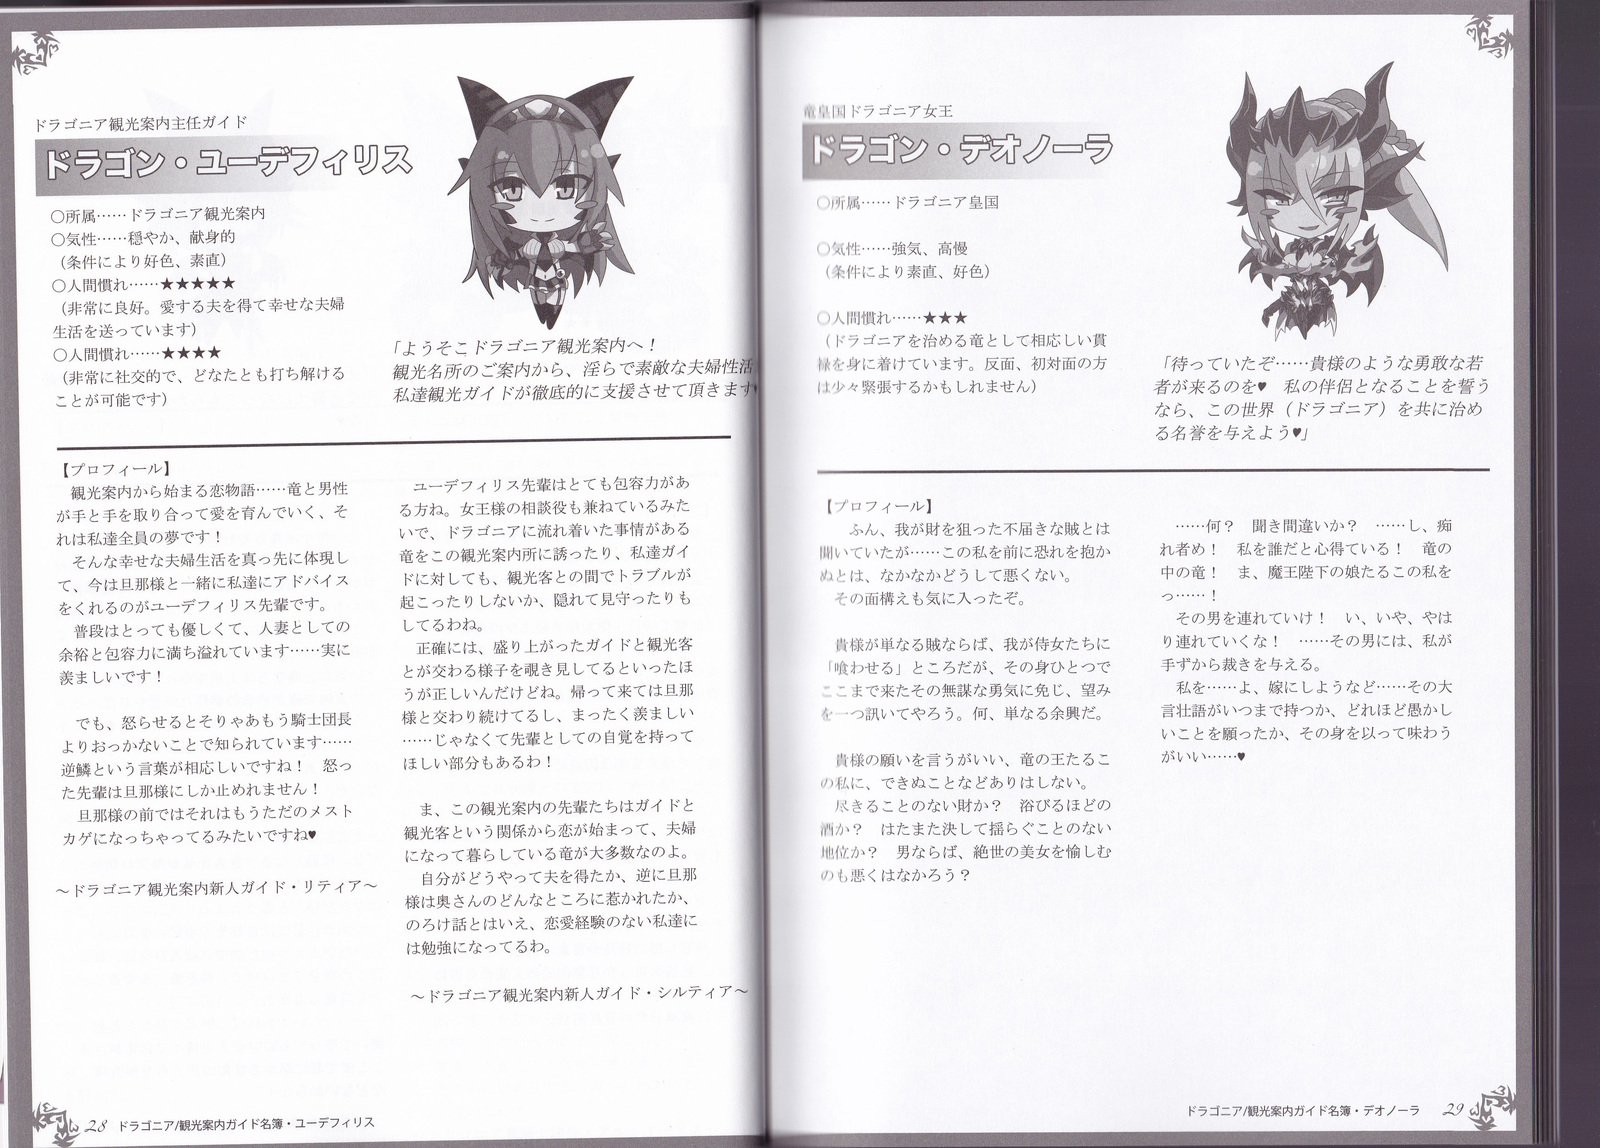 ドラゴニア観光案内主任ガイド
ドラゴン・ユーデフィリス
○所属……ドラゴニア観光案内
○気性……穏やか、献身的
（条件により好色、素直）
○人間慣れ……★★★★★
（非常に良好。愛する夫を得て幸せな夫婦
生活を送っています）
○人間慣れ……★★★★
（非常に社交的で、どなたとも打ち解ける
ことが可能です）
「ようこそドラゴニア観光案内へ！
観光名所のご案内から、淫らで素敵な夫婦性活
私達観光ガイドが徹底的に支援させて頂きます
【プロフィール】
観光案内から始まる恋物語……竜と男性
が手と手を取り合って愛を育んでいく、そ
れは私達全員の夢です！
そんな幸せな夫婦生活を真っ先に体現し
て、今は旦那様と一緒に私達にアドバイス
をくれるのがユーデフィリス先輩です。
普段はとっても優しくて、人妻としての
余裕と包容力に満ち溢れています……実に
羨ましいです！
でも、怒らせるとそりゃあもう騎士団長
よりおっかないことで知られています……
逆鱗という言葉が相応しいですね！　怒っ
た先輩は旦那様にしか止めれません！
旦那様の前ではそれはもうただのメスト
カゲになっちゃってるみたいですね♥
～ドラゴニア観光案内新人ガイド・リティア～
ユーデフィリス先輩はとても包容力があ
る方ね。女王様の相談役も兼ねているみた
いで、ドラゴニアに流れ着いた事情がある
竜をこの観光案内所に誘ったり、私達ガイ
ドに対しても、観光客との間でトラブルが
起こったりしないか、隠れて見守ったりも
してるわね。
正確には、盛り上がったガイドと観光客
とが交わる様子を覗き見してるといったほ
うが正しいんだけどね。帰って来ては旦那
様と交わり続けてるし、まったく羨ましい
……じゃなくて先輩としての自覚を持って
ほしい部分もあるわ！
ま、この観光案内の先輩たちはガイドと
観光客という関係から恋が始まって、夫婦
になって暮らしている竜が大多数なのよ。
自分がどうやって夫を得たか、逆に旦那
様は奥さんのどんなところに惹かれたか、
のろけ話とはいえ、恋愛経験のない私達に
は勉強になってるわ。
～ドラゴニア観光案内新人ガイド・シルティア～
28　ドラゴニア/観光案内ガイド名簿・ユーデフィリス
竜皇国ドラゴニア女王
ドラゴン・デオノーラ
○所属……ドラゴニア皇国
○気性……強気、高慢
（条件により素直、好色）
○人間慣れ……★★★
（ドラゴニアを治める竜として相応しい貫
禄を身に着けています。反面、初対面の方
は少々緊張するかもしれません）
「待っていたぞ……貴様のような勇敢な若
者が来るのを♥　私の伴侶となることを誓う
なら、この世界（ドラゴニア）を共に治め
る名誉を与えよう♥」
【プロフィール】
ふん、我が財を狙った不届きな賊とは
聞いていたが……この私を前に恐れを抱か
ぬとは、なかなかどうして悪くない。
その面構えも気に入ったぞ。
貴様が単なる賊ならば、我が侍女たちに
「喰わせる」ところだが、その身ひとつで
ここまで来たその無謀な勇気に免じ、望み
を一つ訊いてやろう。何、単なる余興だ。
貴様の願いを言うがいい、竜の王たるこ
の私に、できぬことなどありはしない。
尽きることのない財か？　浴びるほどの
酒か？　はたまた決して揺らぐことのない
地位か？　男ならば、絶世の美女を愉しむ
のも悪くはなかろう？
……何？　聞き間違いか？　……し、痴
れ者め！　私を誰だと心得ている！　竜の
中の竜！　ま、魔王陛下の娘たるこの私を
っ……！
その男を連れていけ！　い、いや、やは
り連れていくな！　……その男には、私が
手ずから裁きを与える。
私を……よ、嫁にしようなど……その大
言壮語がいつまで持つか、どれほど愚かし
いことを願ったか、その身を以って味わう
がいい……♥
ドラゴニア/観光案内ガイド名簿・デオノーラ　29